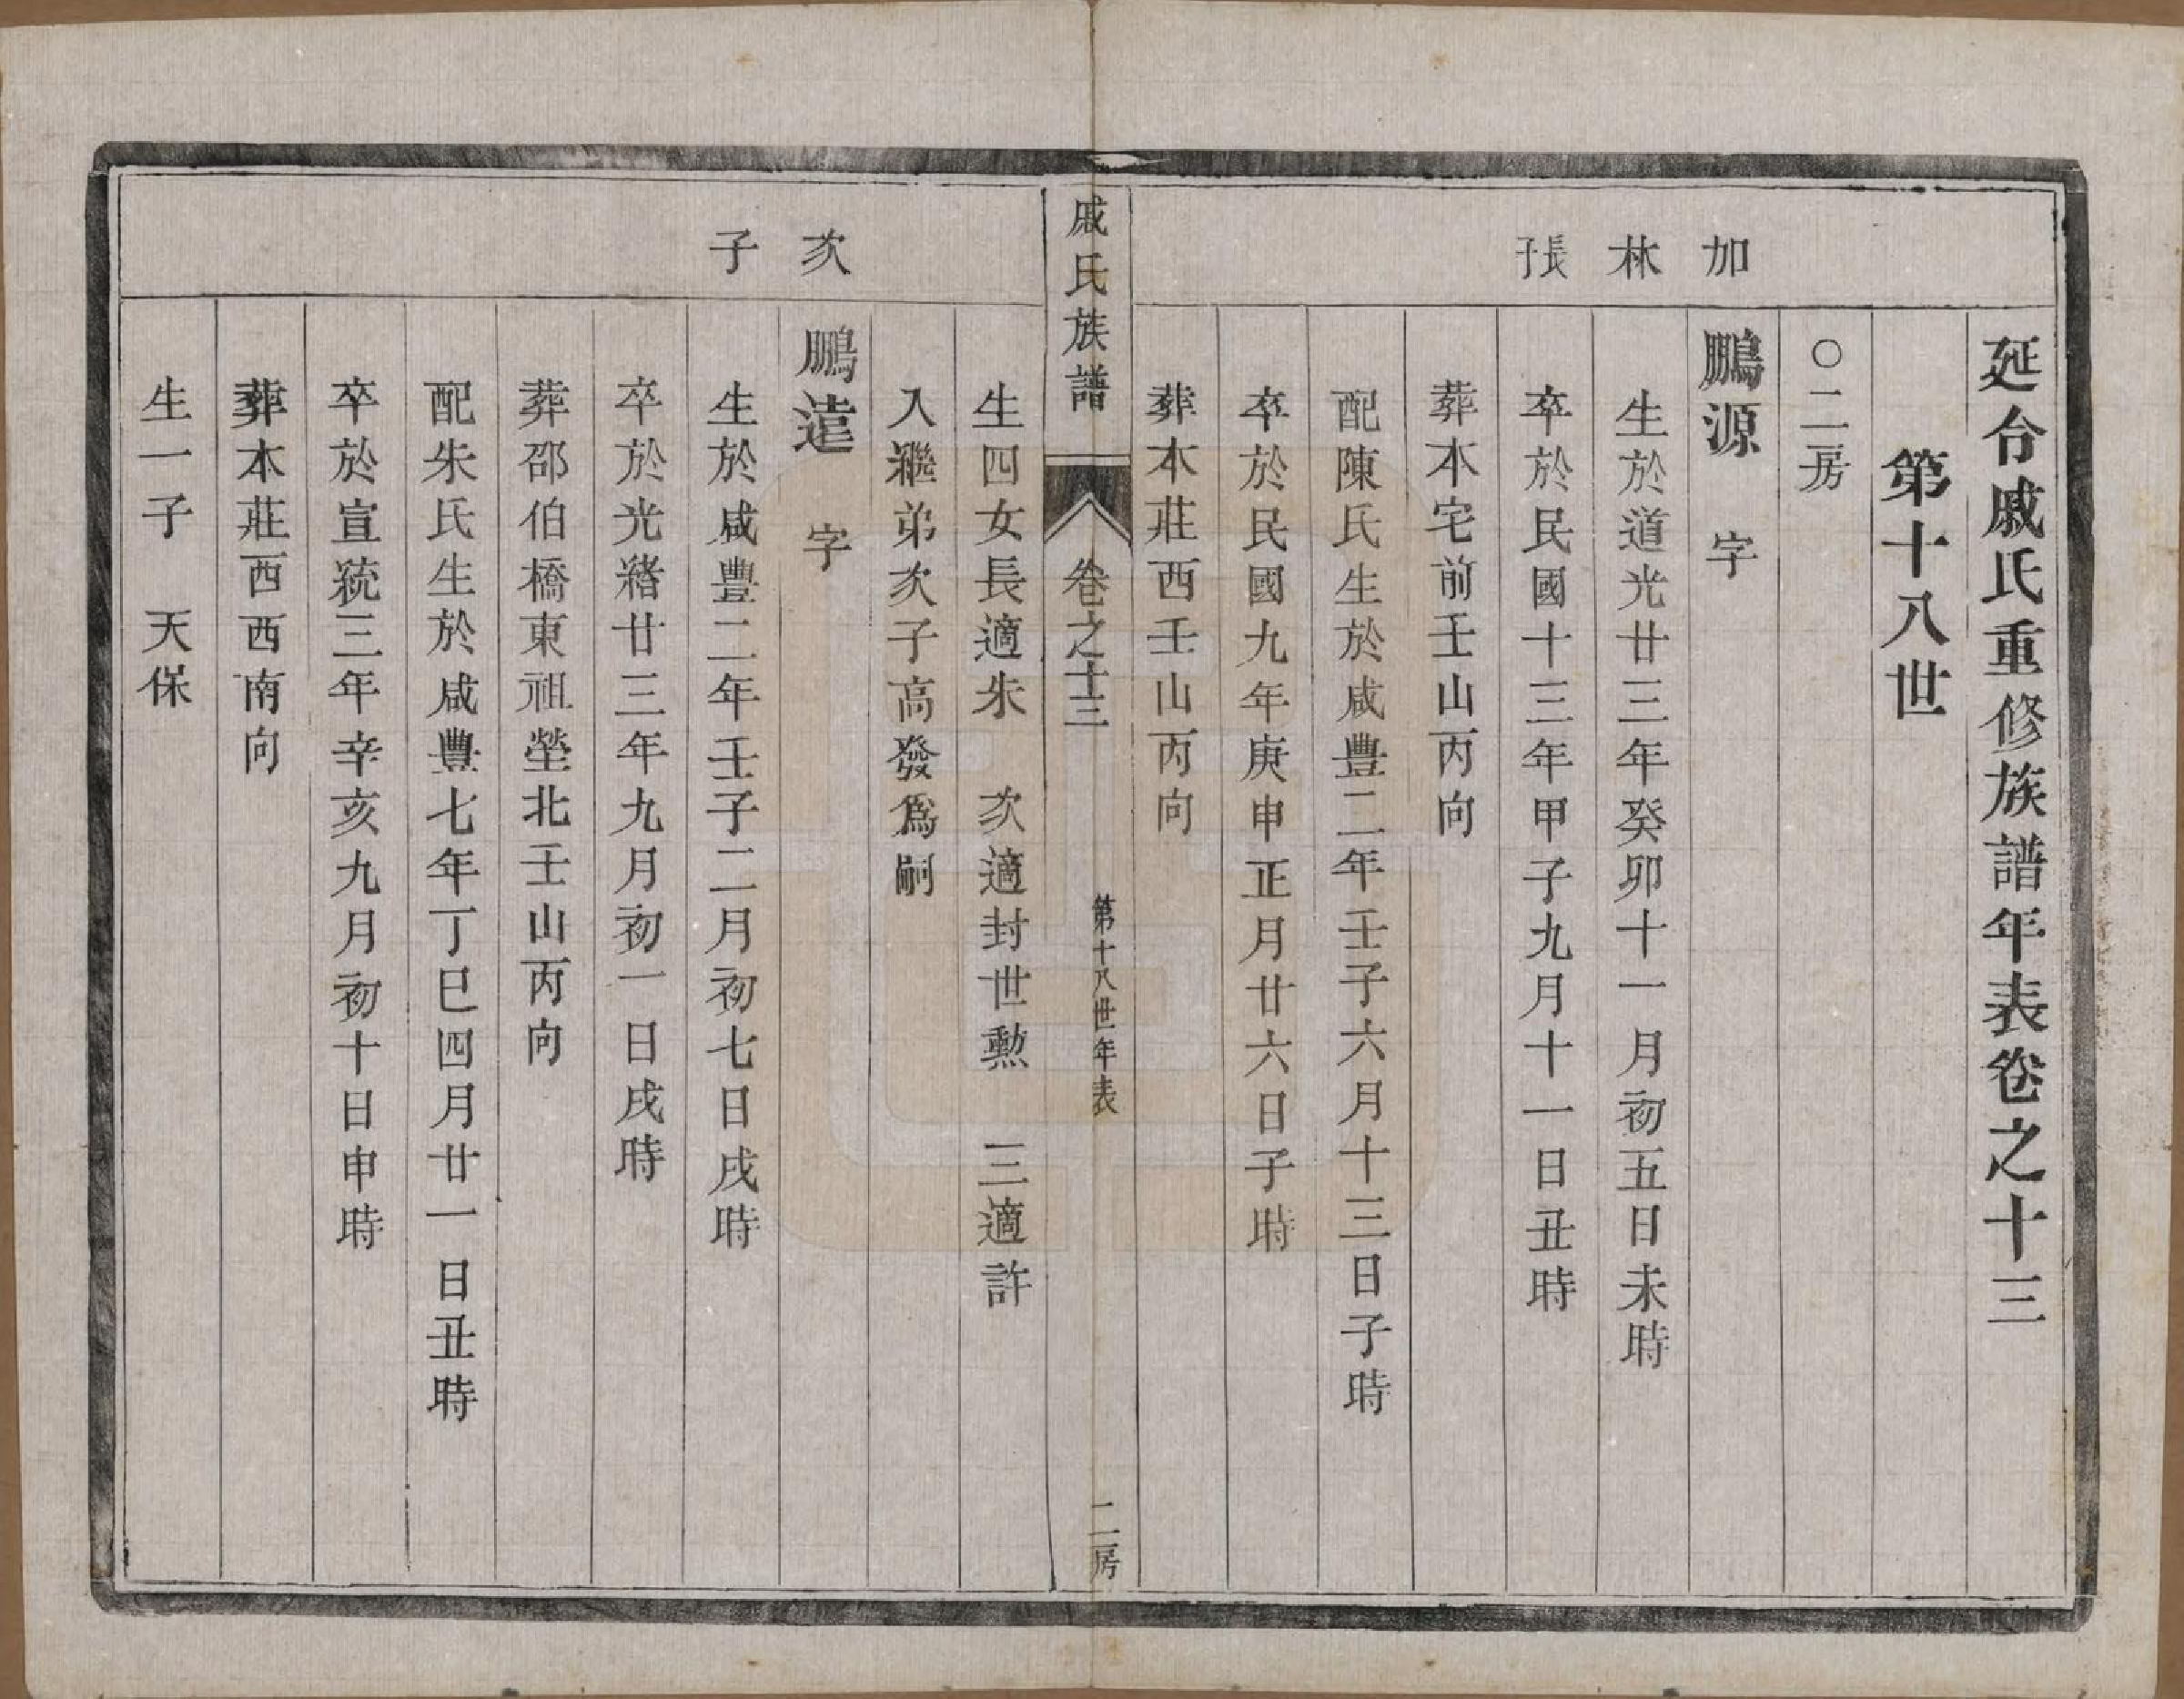 延合戚氏重修族譜年表卷之十三
第十八世
○二房
加林長子
鵬源　字
生於道光廿三年癸卯十一月初五日未時
卒於民國十三年甲子九月十一日丑時
葬本宅前壬山丙向
配陳氏生於咸豐二年壬子六月十三日子時
卒於民國九年庚申正月廿六日子時
葬本莊西壬山丙向
戚氏族譜　卷之十三　第十八世年表　二房
生四女長適朱　次適封世勲　三適許
入繼弟次子高發爲嗣
次子
鵬遠　字
生於咸豐二年壬子二月初七日戌時
卒於光緒廿三年九月初一日戌時
葬邵伯橋東祖塋北壬山丙向
配朱氏生於咸豐七年丁巳四月廿一日丑時
卒於宣統三年辛亥九月初十日申時
葬本莊西西南向
生一子　天保